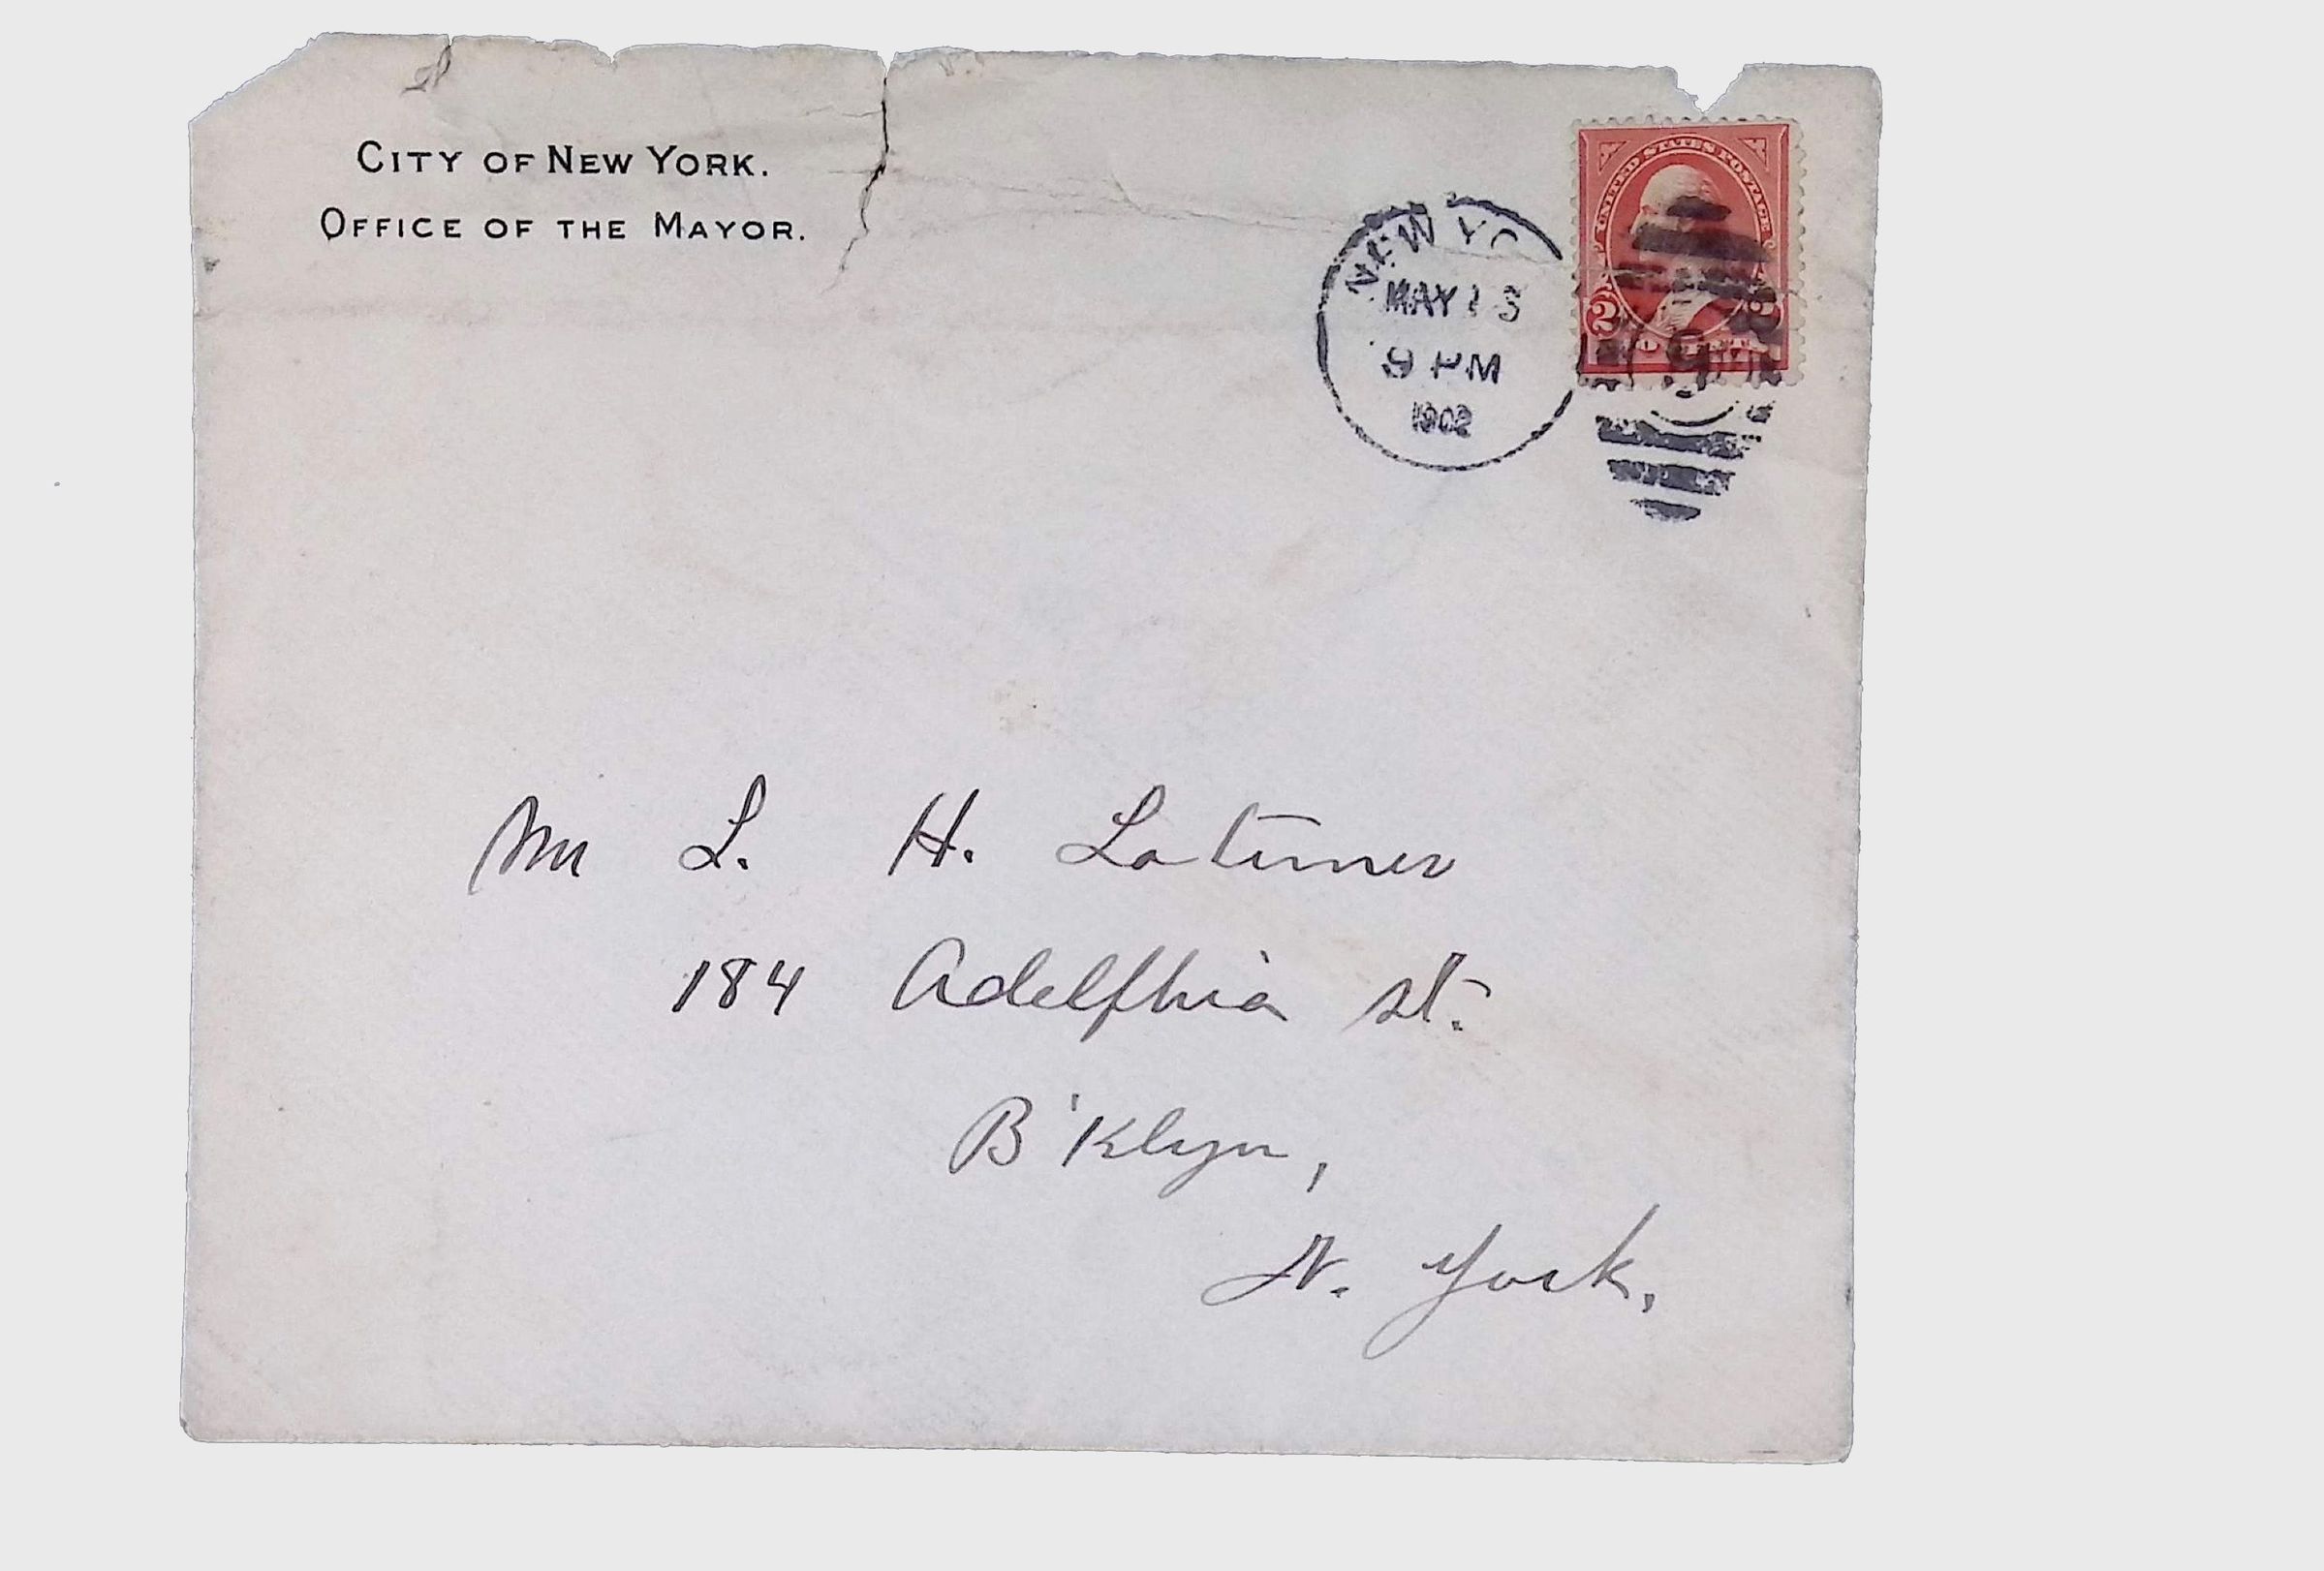 CITY OF NEW YORK.
OFFICE OF THE MAYOR.
UNITED STATES POSTAGE
NEW YO
MAY 13
9 PM
1902
2
Mr L. H. Latimer
184 Adelphia st.
B'Klyn,
N. York.